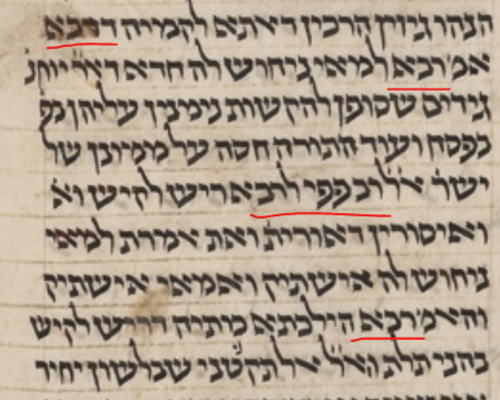 הנהו גידין הרכין דאתא לקמייה דרבא
אמ' רבא למאי ניחוש לה חדא דא"ר יוחנ
גידים שסופן להקשות נימנין עליהן בפ
בפסח ועוד התורה חסה על ממונן של
ישר' א"ל רב פפי לרבא ריש לקיש וא
ואיסורין דאורית' ואת אמרת למאי
ניחוש לה אישתיק ואמאי אישתיק
והאמ' רבא הילכתא כותיה דריש לקיש
בהני תלת והא"ל אל תקנטני שבלשון יחיד